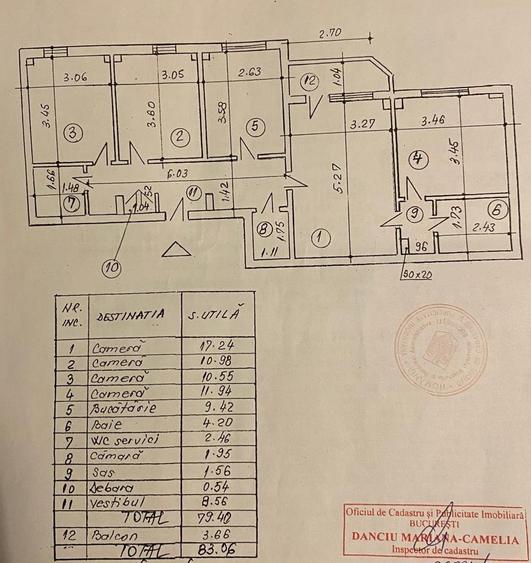 2.70
3.06
3.05
2.63
12
1.04
3.45
3.60
3.58
3.27
3.46
3
2
5
5.27
4
3.45
1.66
6.03
1.48
7
.52
1.04
11
1.42
8
1.75
1.11
1
9
1.73
6
2.43
96
10
30x20
NR. INC.
DESTINATIA
S. UTILĂ
1 Cameră 17.24
2 Cameră 10.98
3 Cameră 10.55
4 Cameră 11.94
5 Bucătărie 9.42
6 Baie 4.20
7 WC servici 2.46
8 Cămară 1.95
9 Sas 1.56
10 Debara 0.54
11 Vestibul 8.56
TOTAL 79.40
12 Balcon 3.66
TOTAL 83.06
Oficiul de Cadastru și Publicitate Imobiliară
BUCUREȘTI
DANCIU MARIANA-CAMELIA
Inspector de cadastru